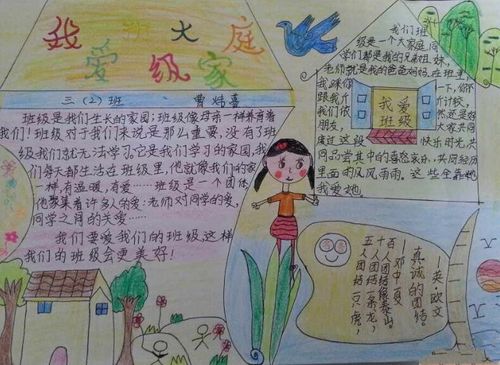 我 大 庭
爱 级 家
三（2）班 曹炜喜
班级是我们生长的家园；班级像母亲一样养育着
我们！班级对于我们来说是那么重要，没有了班
级我们就无法学习。它是我们学习的家园，我
们每天都生活在班级里，他就像我们的家
一样，有温暖，有爱……班级是一个团体，
他聚集着许多人的爱：老师对同学的爱，
同学之间的关爱……
我们要爱我们的班级，这样
我们的班级会更美好！
我们班
级是一个大家庭，同
学们都是我的兄弟姐妹，
老师就是我的爸爸妈妈，在班里，
我踩你一下，你
跟我斤斤计较，
我们依然还是好
朋友，大家共同
度过这段快乐时光，共
同品尝其中的喜怒哀乐，共同经历
里面的风风雨雨。这些全靠她
我爱她。
我爱
班级
真诚的团结。
——英 欧文
——邓中夏
百人团结像泰山。
十人团结一条龙，
五人团结一只虎，